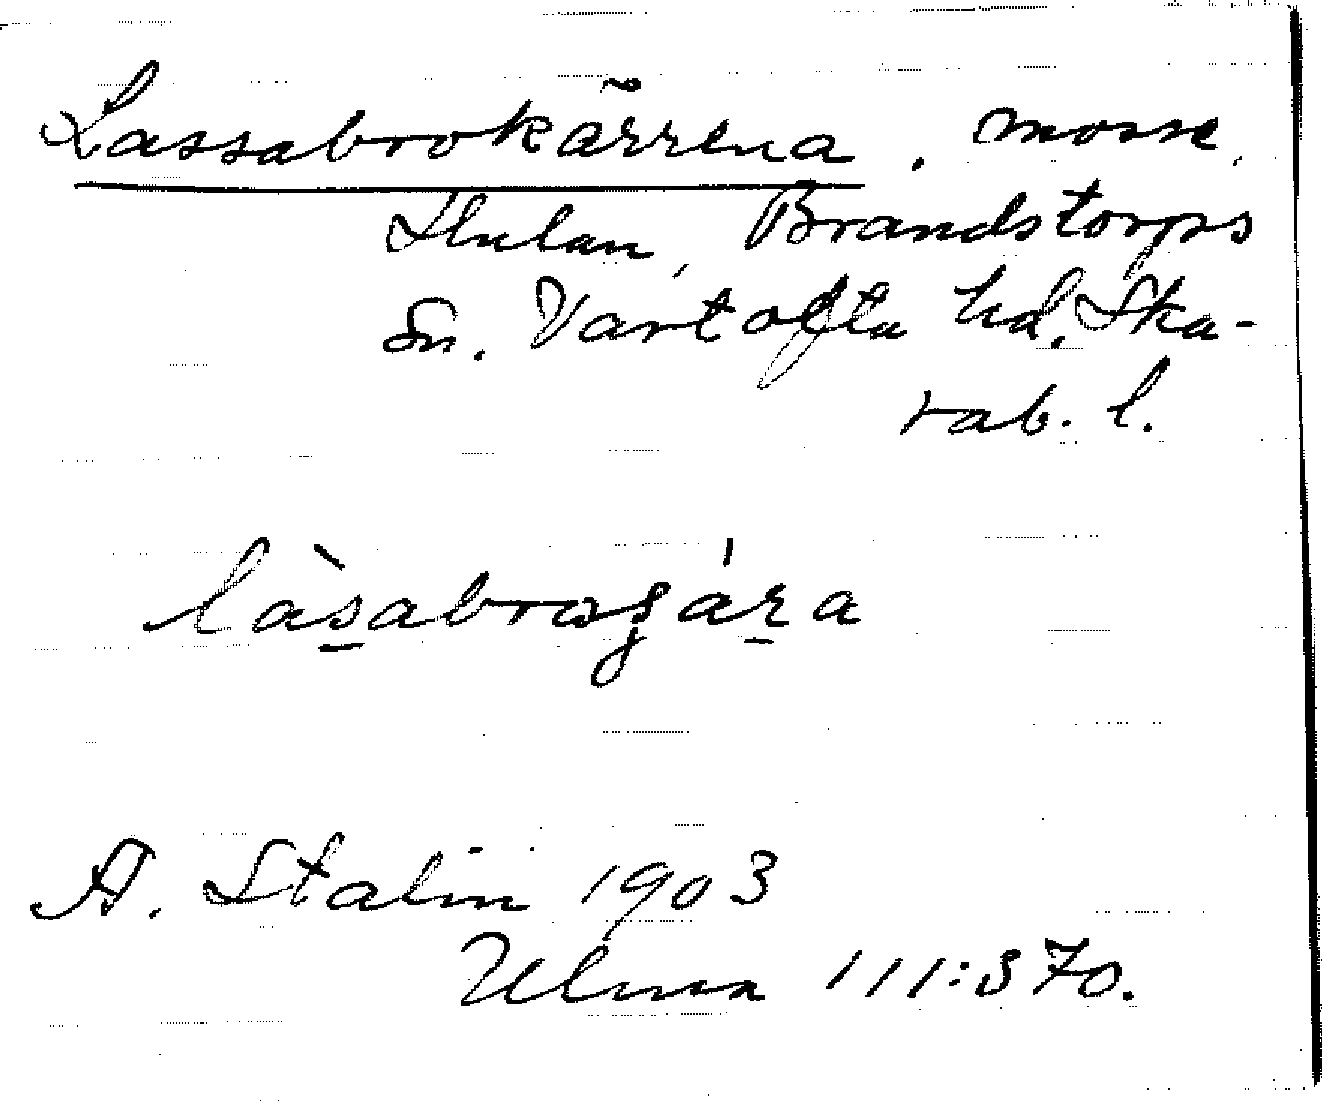 Lassabrokärrena, mosse,
Stulan, Brandstorps
Sn. Vartofta hd. Ska-
rab. l.
A. Stalin 1903
Ulma 111:S70.